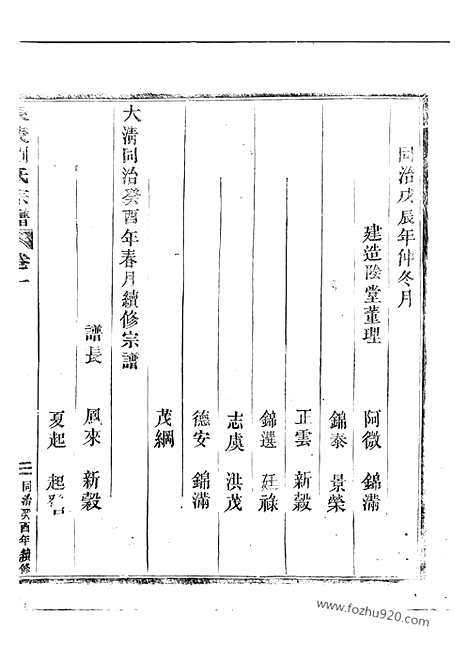 同治戊辰年仲冬月
建造陰堂董理
阿微 錦滿
錦泰 景榮
正雲 新穀
錦選 廷祿
志虞 洪茂
德安 錦滿
茂綱
大清同治癸酉年春月續修宗譜
譜長
鳳來 新穀
夏起 起
劉氏宗譜 卷一
同治癸酉年續修
www.fozhu920.com